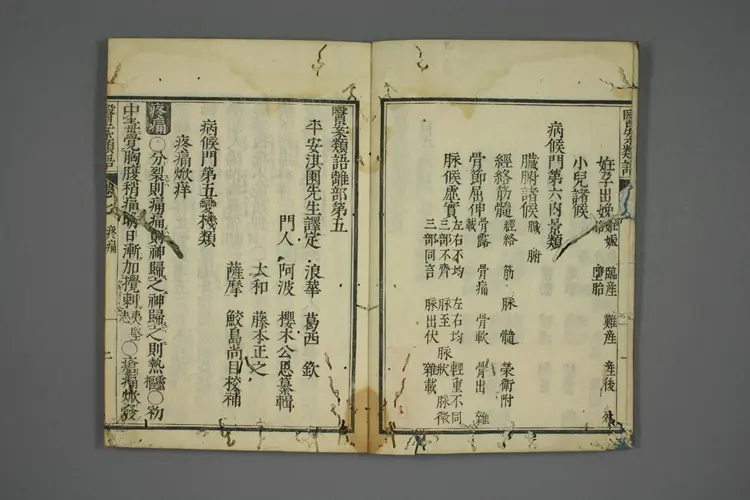 醫案類語
妊孕出娩 妊娠 臨産 難産 産後
墮胎
小兒諸候
病候門第六内景類
臟腑諸候 臟 腑
經絡筋髓 經絡 筋 脉 髓 榮衛附
骨節屈伸 骨露 骨痛 骨軟 骨出 雜載
脉候虛實 左右不均 左右均 輕重不同
三部不齊 脉至 脉狀 脉徵
三部同言 脉出伏 雜載
醫案類語離部第五
平安淇園先生譯定 浪華 葛西 欽
門人 阿波 櫻木公恩纂輯
太和 藤本正之
薩摩 鮫島尚目校補
病候門第五變機類
疼痛焮痒
疼痛 ○分裂則痛痛則神歸之神歸之則熱 ○初
中 覺胸腹稍痛明日漸加攪刺 夷堅志 ○瘡痛焮發
醫案類語 疼痛 一